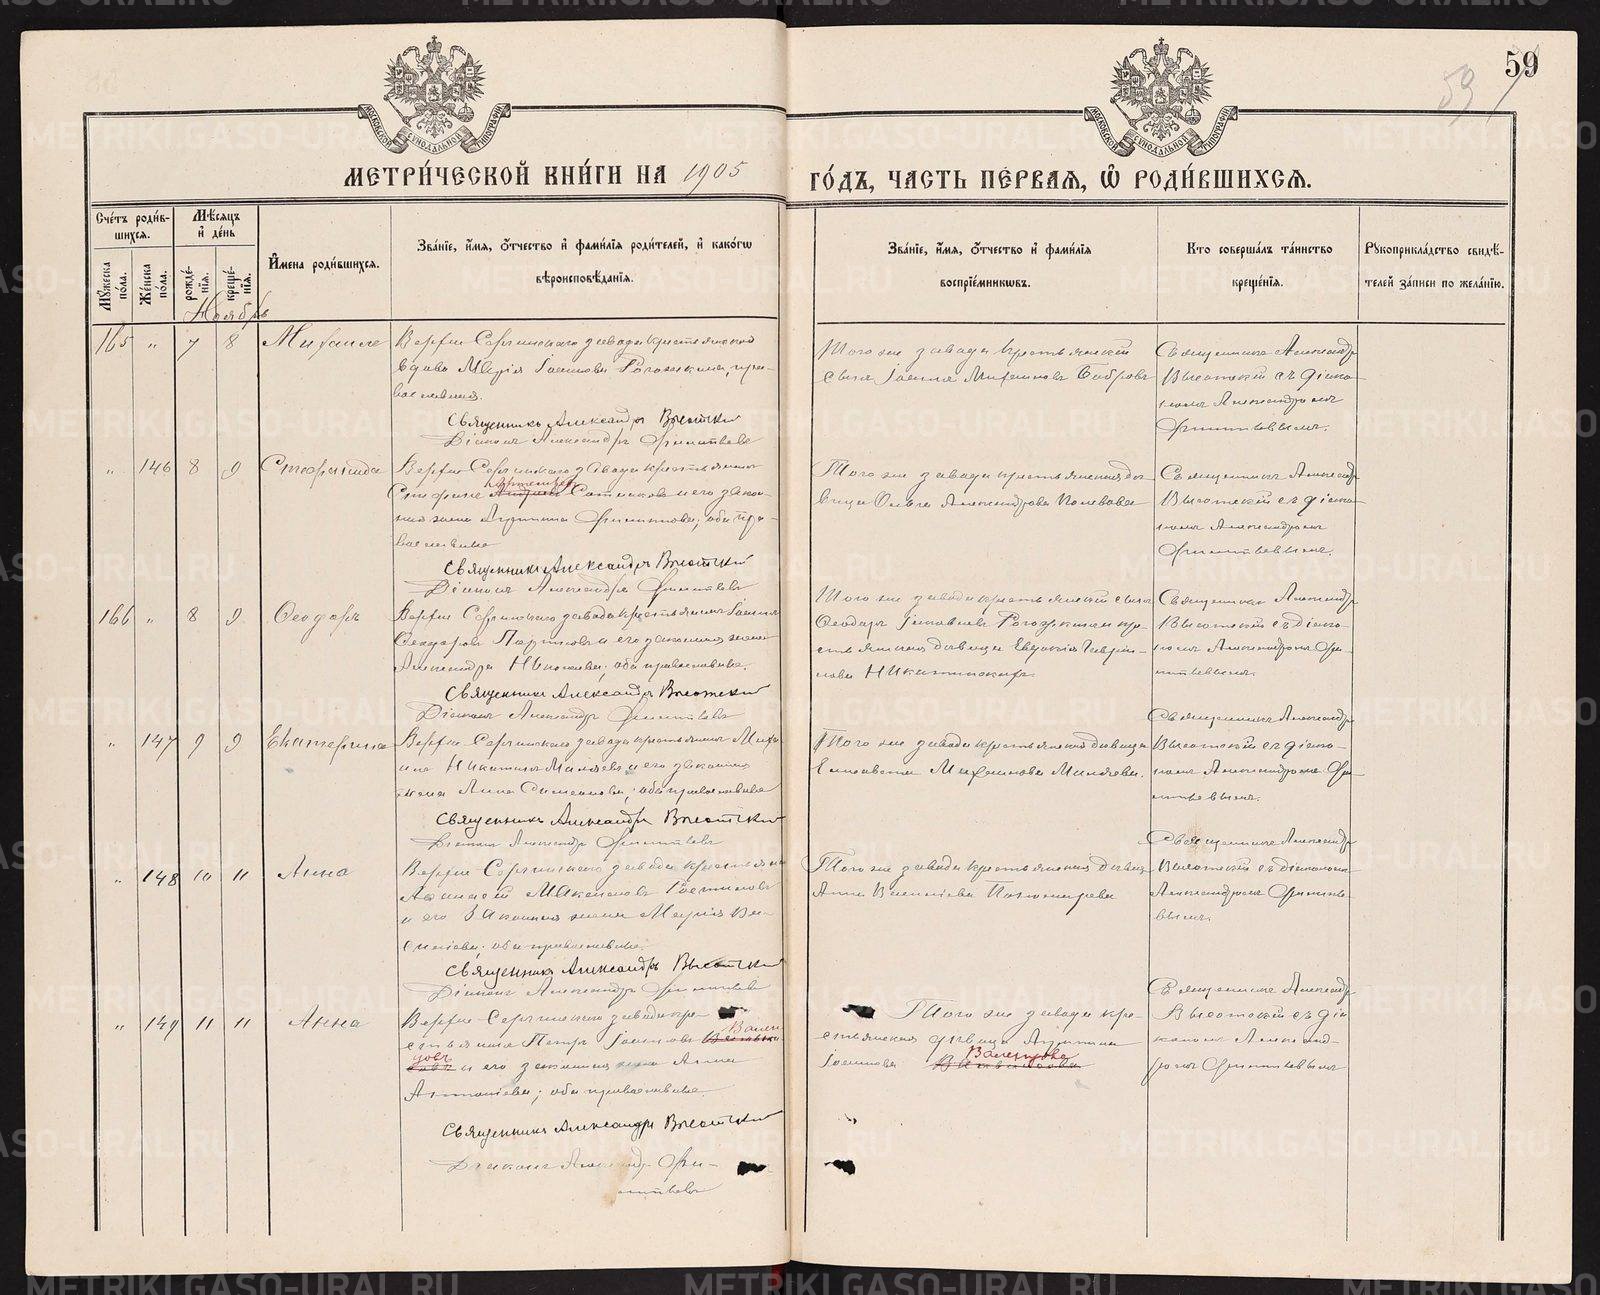 59
59
МОСКОВСКОЙ СѴНОДАЛЬНОЙ ТИПОГРАФІИ
МОСКОВСКОЙ СѴНОДАЛЬНОЙ ТИПОГРАФІИ
МЕТРИ́ЧЕСКОЙ КНИ́ГИ НА 1905
ГО́ДЪ, ЧАСТЬ ПЕ́РВАЯ, Ѡ РОДИ́ВШИХСЯ.
Сче́тъ роди́в-
шихся.
Мꙋ́жеска по́ла.
Же́нска по́ла.
Мѣ́сяцъ
и҆ де́нь
рожде́нїя.
креще́нїя.
И҆мена роди́вшихся.
Зва́нїе, и҆́мя, ѻ҆́тчество и҆ фами́лїя роди́телей, и҆ како́гѡ
вѣроисповѣ́данїя.
Зва́нїе, и҆́мя, ѻ҆́тчество и҆ фами́лїя
воспрїе́мникѡвъ.
Кто̀ соверша́лъ та́инство
креще́нїя.
Рꙋкоприкла́дство свидѣ́-
телей за́писи по жела́нїю.
Ноябрь
165 " 7 8 Михаилъ
Верхне Сергинскаго завода крестьянская
вдова Марія Іоаннова Рогожкина, пра-
вославная.
Священникъ Александръ Высотскій
Діаконъ Александръ
Того же завода крестьянскій
сынъ Іоаннъ Михаиловъ Бобровъ
Священникъ Александръ
Высотскій съ діако-
номъ Александромъ
" 146 8 9 Стефанида
Верхне Сергинскаго завода крестьянинъ
Стефанъ
и его закон-
ная жена Агрипина Филиппова; оба пра-
вославные
Священникъ Александръ Высотскій
Діаконъ Александръ
Того же завода крестьянская дѣ-
вица Ольга Александрова
Священникъ Александръ
Высотскій съ діако-
номъ Александромъ
166 " 8 9 Ѳеодоръ
Верхне Сергинскаго завода крестьянинъ Іоаннъ
Ѳеодоровъ и его законная жена
Александра Николаева; оба православные.
Священникъ Александръ Высотскій
Діаконъ Александръ
Того же завода крестьянскій сынъ
Ѳеодоръ Рогожкинъ и кре-
стьянская дѣвица Евдокія Гаврии-
лова
Священникъ Александръ
Высотскій съ діако-
номъ Александромъ
" 147 9 9 Екатерина
Верхне Сергинскаго завода крестьянинъ Миха-
илъ Никитинъ Миляевъ и его законная
жена Анна Симеонова; оба православные
Священникъ Александръ Высотскій
Діаконъ Александръ
Того же завода крестьянская дѣвица
Елисавета Михаилова Миляева.
Священникъ Александръ
Высотскій съ діако-
номъ Александромъ
" 148 10 11 Анна
Верхне Сергинскаго завода крестьянинъ
Максимовъ
и его законная жена Марія Ва-
сильева; оба православные.
Священникъ Александръ Высотскій
Діаконъ Александръ
Того же завода крестьянская дѣвица
Анна Васильева Пономарева
Священникъ Александръ
Высотскій съ діакономъ
Александромъ
" 149 11 11 Анна
Верхне Сергинскаго завода кре-
стьянинъ Петръ Іоанновъ
и его законная жена Анна
Антоніева; оба православные.
Священникъ Александръ Высотскій
Діаконъ Александръ
Того же завода кре-
стьянская дѣвица Агрипина
Іоаннова
Священникъ Александръ
Высотскій съ діа-
кономъ Александ-
ромъ
METRIKI.GASO-URAL.RU